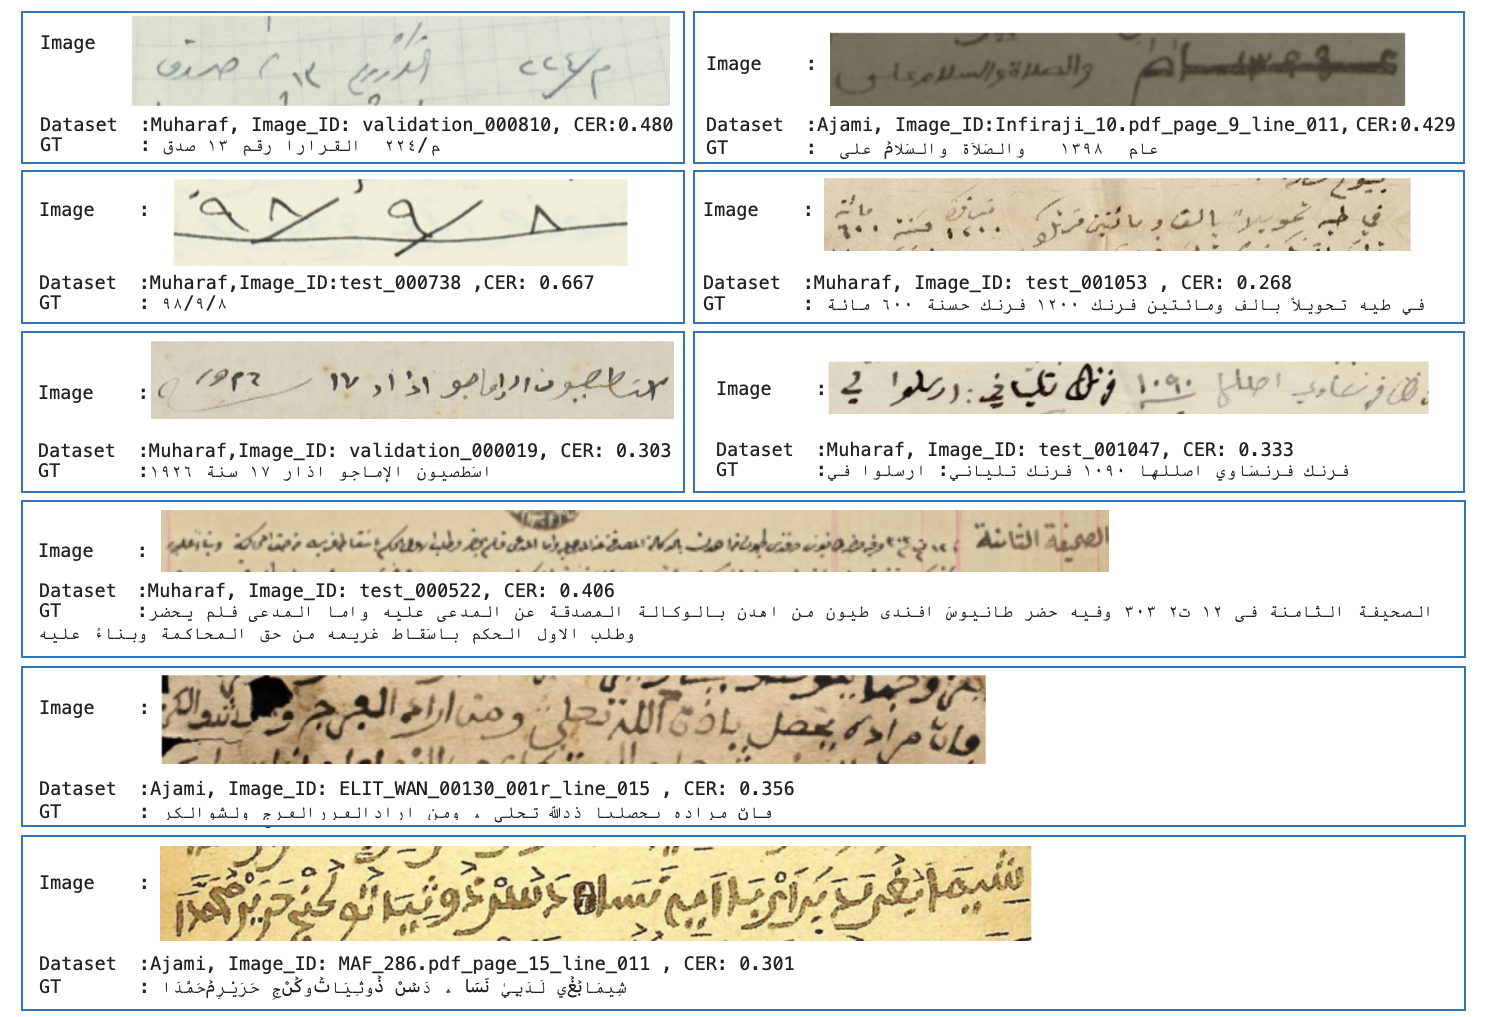 Image
م/٢٢٤ ١٣ صدق
Dataset :Muharaf, Image_ID: validation_000810, CER:0.480
GT : م/٢٢٤ القرارا رقم ١٣ صدق
Image :
والصلاة والسلام على
Dataset :Ajami, Image_ID:Infiraji_10.pdf_page_9_line_011, CER:0.429
GT : عام ١٣٩٨ والصَلاَة والسَلامُ على
Image :
٩٨/٩/٨
Dataset :Muharaf,Image_ID:test_000738 ,CER: 0.667
GT : ٩٨/٩/٨
Image :
في طيه تحويلاً بالف ومائتين فرنك ١٢٠٠ ٦٠٠ مائة
Dataset :Muharaf, Image_ID: test_001053 , CER: 0.268
GT : في طيه تحويلاً بالف ومائتين فرنك ١٢٠٠ فرنك حسنة ٦٠٠ مائة
Image :
اذار ١٧ ١٩٢٦
Dataset :Muharaf,Image_ID: validation_000019, CER: 0.303
GT :اسَطصيون الإماجو اذار ١٧ سنة ١٩٢٦
Image :
فرنساوي اصللها ١٠٩٠ فرنك تلياني: ارسلوا في
Dataset :Muharaf, Image_ID: test_001047, CER: 0.333
GT :فرنك فرنسَاوي اصللها ١٠٩٠ فرنك تلياني: ارسلوا في
Image :
الصحيفة الثامنة
Dataset :Muharaf, Image_ID: test_000522, CER: 0.406
GT :الصحيفة الثامنة فى ١٢ ت٢ ٣٠٣ وفيه حضر طانيوسَ افندى طيون من اهدن بالوكالة المصدقة عن المدعى عليه واما المدعى فلم يحضر
وطلب الاول الحكم باسَقاط غريمه من حق المحاكمة وبناءً عليه
Image :
فانّ مراده يحصل باذن الله تحلى ومن اراد الفرج
Dataset :Ajami, Image_ID: ELIT_WAN_00130_001r_line_015 , CER: 0.356
GT : فانّ مراده يحصلبا ذدالله تحلى ، ومن ارادالفررالفرج ولشوالكر
Image :
Dataset :Ajami, Image_ID: MAF_286.pdf_page_15_line_011 , CER: 0.301
GT : شِيمَابُغْي لَدَيِيٰ نَسَا ، دَسْنْ ذُوثِيَاتُوكُنْجِ حَرَيْرِمُحَمَّدَا